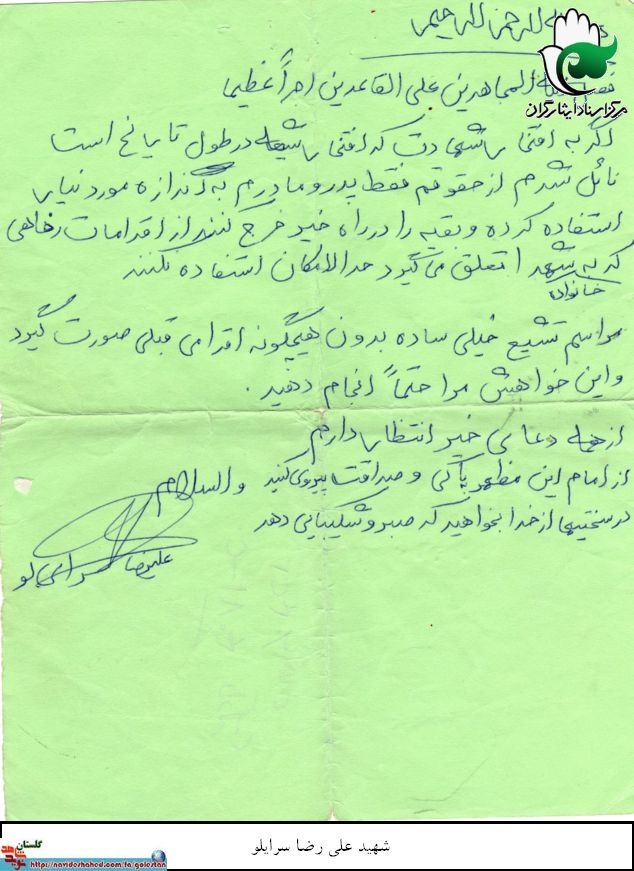 بسم الله الرحمن الرحیم
مرکز اسناد ایثارگران
فضل الله المجاهدین علی القاعدین اجراً عظیما
اگر به افتخار شهادت که افتخار شیعه در طول تاریخ است
نائل شدم از حقوقم فقط پدر و مادرم به اندازه مورد نیاز
استفاده کرده و بقیه را در راه خیر خرج کنند از اقدامات رفاهی
که به خانواده شهدا تعلق می گیرد حدالامکان استفاده نکنند
مراسم تشیع خیلی ساده بدون هیچگونه اقدامی قبلی صورت گیرد
و این خواهش مرا حتماً انجام دهید .
از همه دعای خیر انتظار دارم
از امام این مظهر پاکی و صداقت پیروی کنید والسلام
در سختیها از خدا بخواهید که صبر و شکیبایی دهد
علیرضا سرایلو
شهید علی رضا سرایلو
گلستان
https://navideshahed.com/fa/golestan